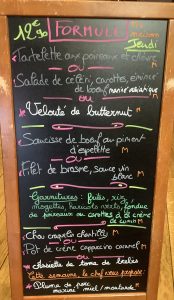 12€90 FORMULE maison
Jeudi
Tartelette aux poireaux et chèvre M
ou
Salade de céleri, carottes, émincé
de boeuf, mariné asiatique
ou M
Velouté de butternut M
Saucisse de boeuf au piment
d'espelette M
ou
Filet de brosme, sauce vin
blanc M
Garnitures: frites, riz,
mogettes, haricots verts, fondue
de poireaux ou carottes à la crème
de cumin M
Chou craquelin chantilly M
ou
Pot de crème cappuccino caramel M
ou
Assiette de tome de
Cette semaine, le chef vous propose:
Pluma de porc
mariné miel/moutarde M